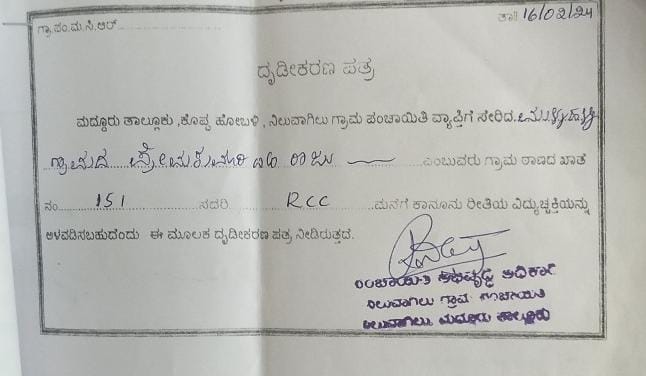 ಗ್ರಾ.ಪಂ.ಮ.ಸಿ.ಆರ್ ತಾ॥ 16/02/24
ದೃಡೀಕರಣ ಪತ್ರ
ಮದ್ದೂರು ತಾಲ್ಲೂಕು ,ಕೊಪ್ಪ ಹೋಬಳಿ , ನಿಲುವಾಗಿಲು ಗ್ರಾಮ ಪಂಚಾಯಿತಿ ವ್ಯಾಪ್ತಿಗೆ ಸೇರಿದ
ಗ್ರಾಮದ ಪ್ರೇಮಕುಮಾರಿ ರಾಜು ಎಂಬುವರು ಗ್ರಾಮ ಠಾಣದ ಖಾತೆ
ನಂ 151 ಸದರಿ RCC ಮನೆಗೆ ಕಾನೂನು ರೀತಿಯ ವಿದ್ಯುಚ್ಛಕ್ತಿಯನ್ನು
ಅಳವಡಿಸಬಹುದೆಂದು ಈ ಮೂಲಕ ದೃಡೀಕರಣ ಪತ್ರ ನೀಡಿರುತ್ತದೆ.
ಪಂಚಾಯಿತಿ ಅಭಿವೃದ್ಧಿ ಅಧಿಕಾರಿ
ನಿಲುವಾಗಿಲು ಗ್ರಾಮ ಪಂಚಾಯಿತಿ
ನಿಲುವಾಗಿಲು, ಮದ್ದೂರು ತಾಲ್ಲೂಕು